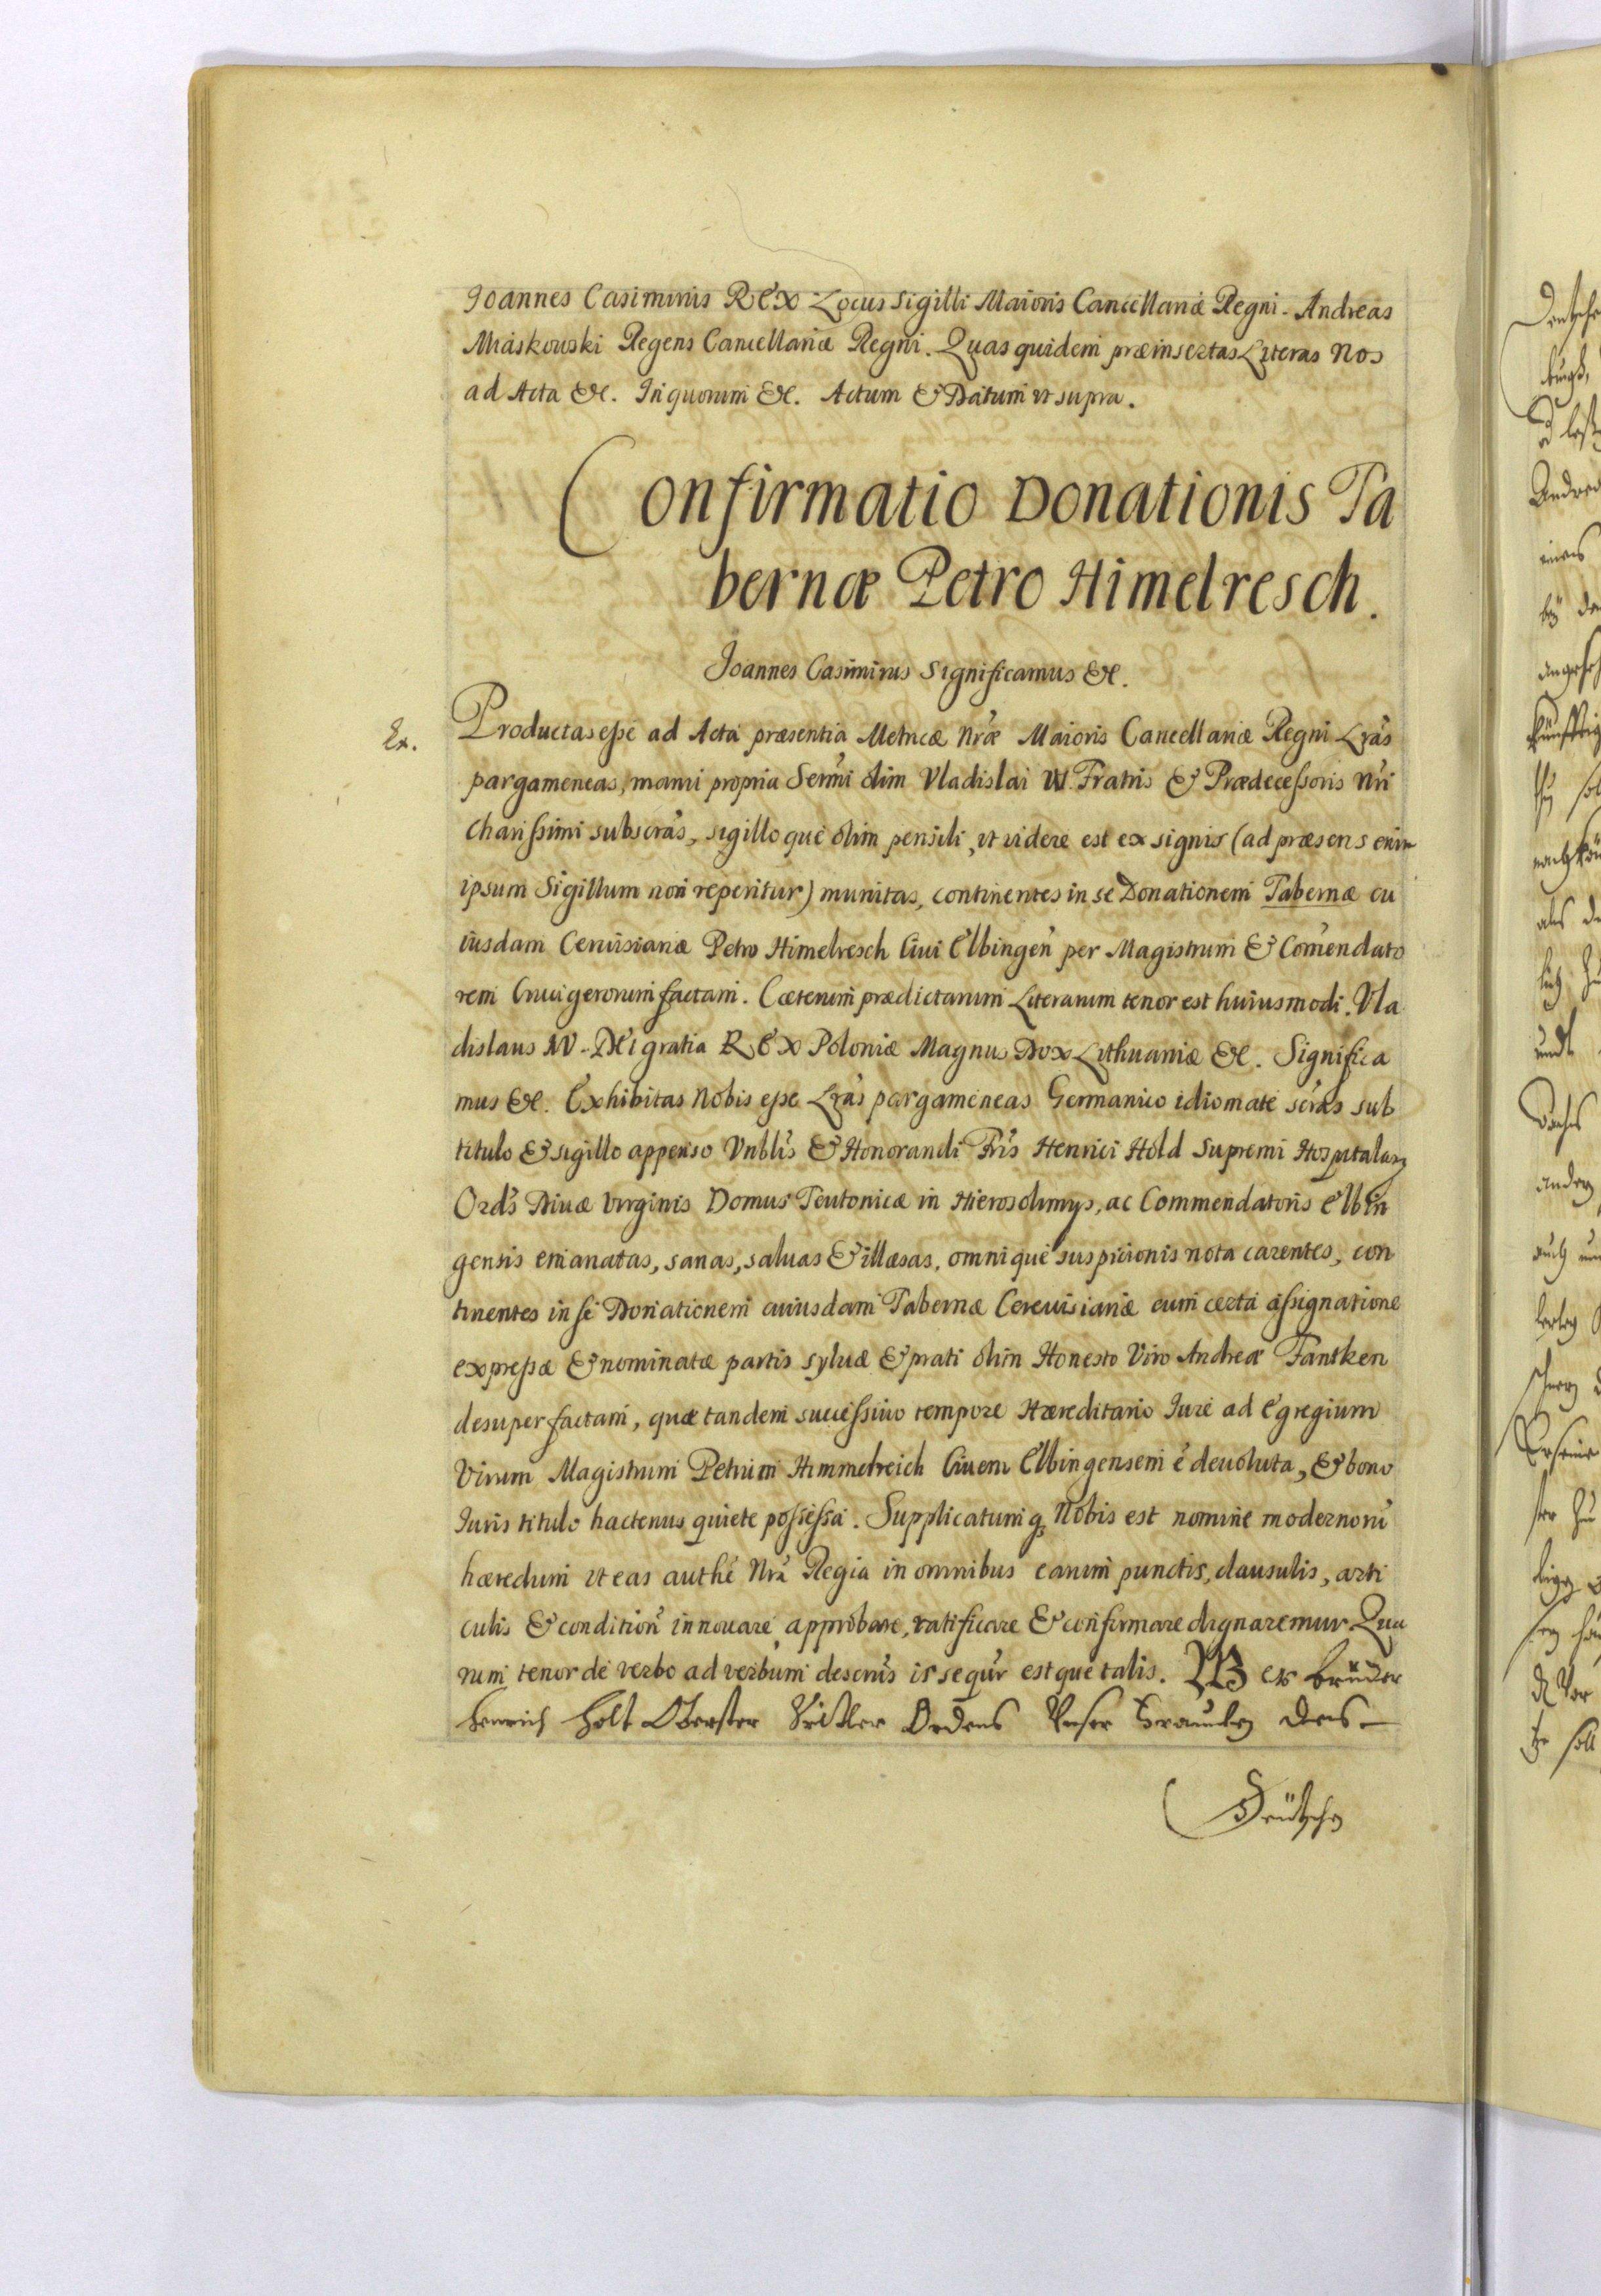 Ioannes Casimirus REX Locus Sigilli Maioris Cancellariæ Regni. Andreas
Miaskowski Regens Cancellariæ Regni. Quas quidem præinsertas Literas Nos
ad Acta &c. In quorum &c. Actum & Datum vt supra.
Confirmatio Donationis Ta
bernæ Petro Himelresch.
Ioannes Casimirus Significamus &c.
Ex.
Productas esse ad Acta præsentia Metricæ Nræ Maioris Cancellariæ Regni Lras
pargameneas, manu propria Sermi olim Vladislai IV. Fratris & Prædecessoris Nri
Charissimi subscras, sigilloque olim pensili, vt videre est ex signis (ad præsens enim
ipsum Sigillum non reperitur) munitas, continentes in se Donationem Tabernæ cu
iusdam Ceruisiariæ Petro Himelresch Ciui Elbingen per Magistrum & Comendato
rem Crucigerorum factam. Cæterum prædictarum Literarum tenor est huiusmodi. Vla
dislaus IV. DEI gratia REX Poloniæ Magnus Dux Lithuaniæ &c. Significa
mus &c. Exhibitas Nobis esse Lras pargameneas Germanico idiomate scras sub
titulo & sigillo appenso Vnblis & Honorandi Fris Henrici Hold Supremi Hospitalary
Ords Diuæ Virginis Domus Teutonicæ in Hierosolimys, ac Commendatoris Elbin
gensis emanatas, sanas, saluas & illæsas, omnique suspicionis nota carentes, con
tinentes in se Donationem cuiusdam Tabernæ Cereuisiariæ cum certa assignatione
expressæ & nominatæ partis syluæ & prati olim Honesto Viro Andreæ Fantken
desuper factam, quæ tandem successiuo tempore Hæreditario Iure ad Egregium
Virum Magistrum Petrum Himmelreich Ciuem Elbingensem e deuoluta, & bono
Iuris titulo hactenus quiete possessa. Supplicatumq Nobis est nomine modernoru
hæredum vt eas authe Nra Regia in omnibus earum punctis, clausulis, arti
culis & condition innouare, approbare, ratificare & confirmare dignaremur. Qua
rum tenor de verbo ad verbum descrus is sequr estque talis. Wer Brüder
Henrich Holt Oberster Spittler Ordens Vnser Frauwen Des
Deütschen